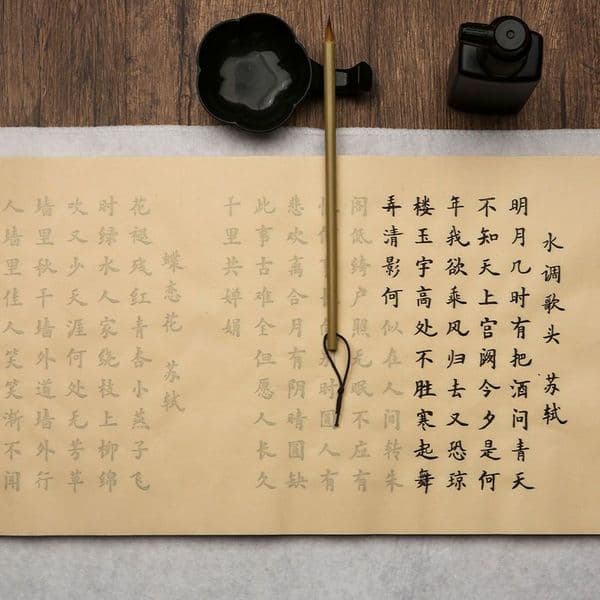 水调歌头 苏轼
明月几时有把酒问青天
不知天上宫阙今夕是何
年我欲乘风归去又恐琼
楼玉宇高处不胜寒起舞
弄清影何似在人间转朱
阁低绮户照无眠不应有
时圆人有
悲欢离合月有阴晴圆缺
此事古难全但愿人长久
千里共婵娟
蝶恋花 苏轼
花褪残红青杏小燕子飞
时绿水人家绕枝上柳绵
吹又少天涯何处无芳草
墙里秋千墙外道墙外行
人墙里佳人笑笑渐不闻